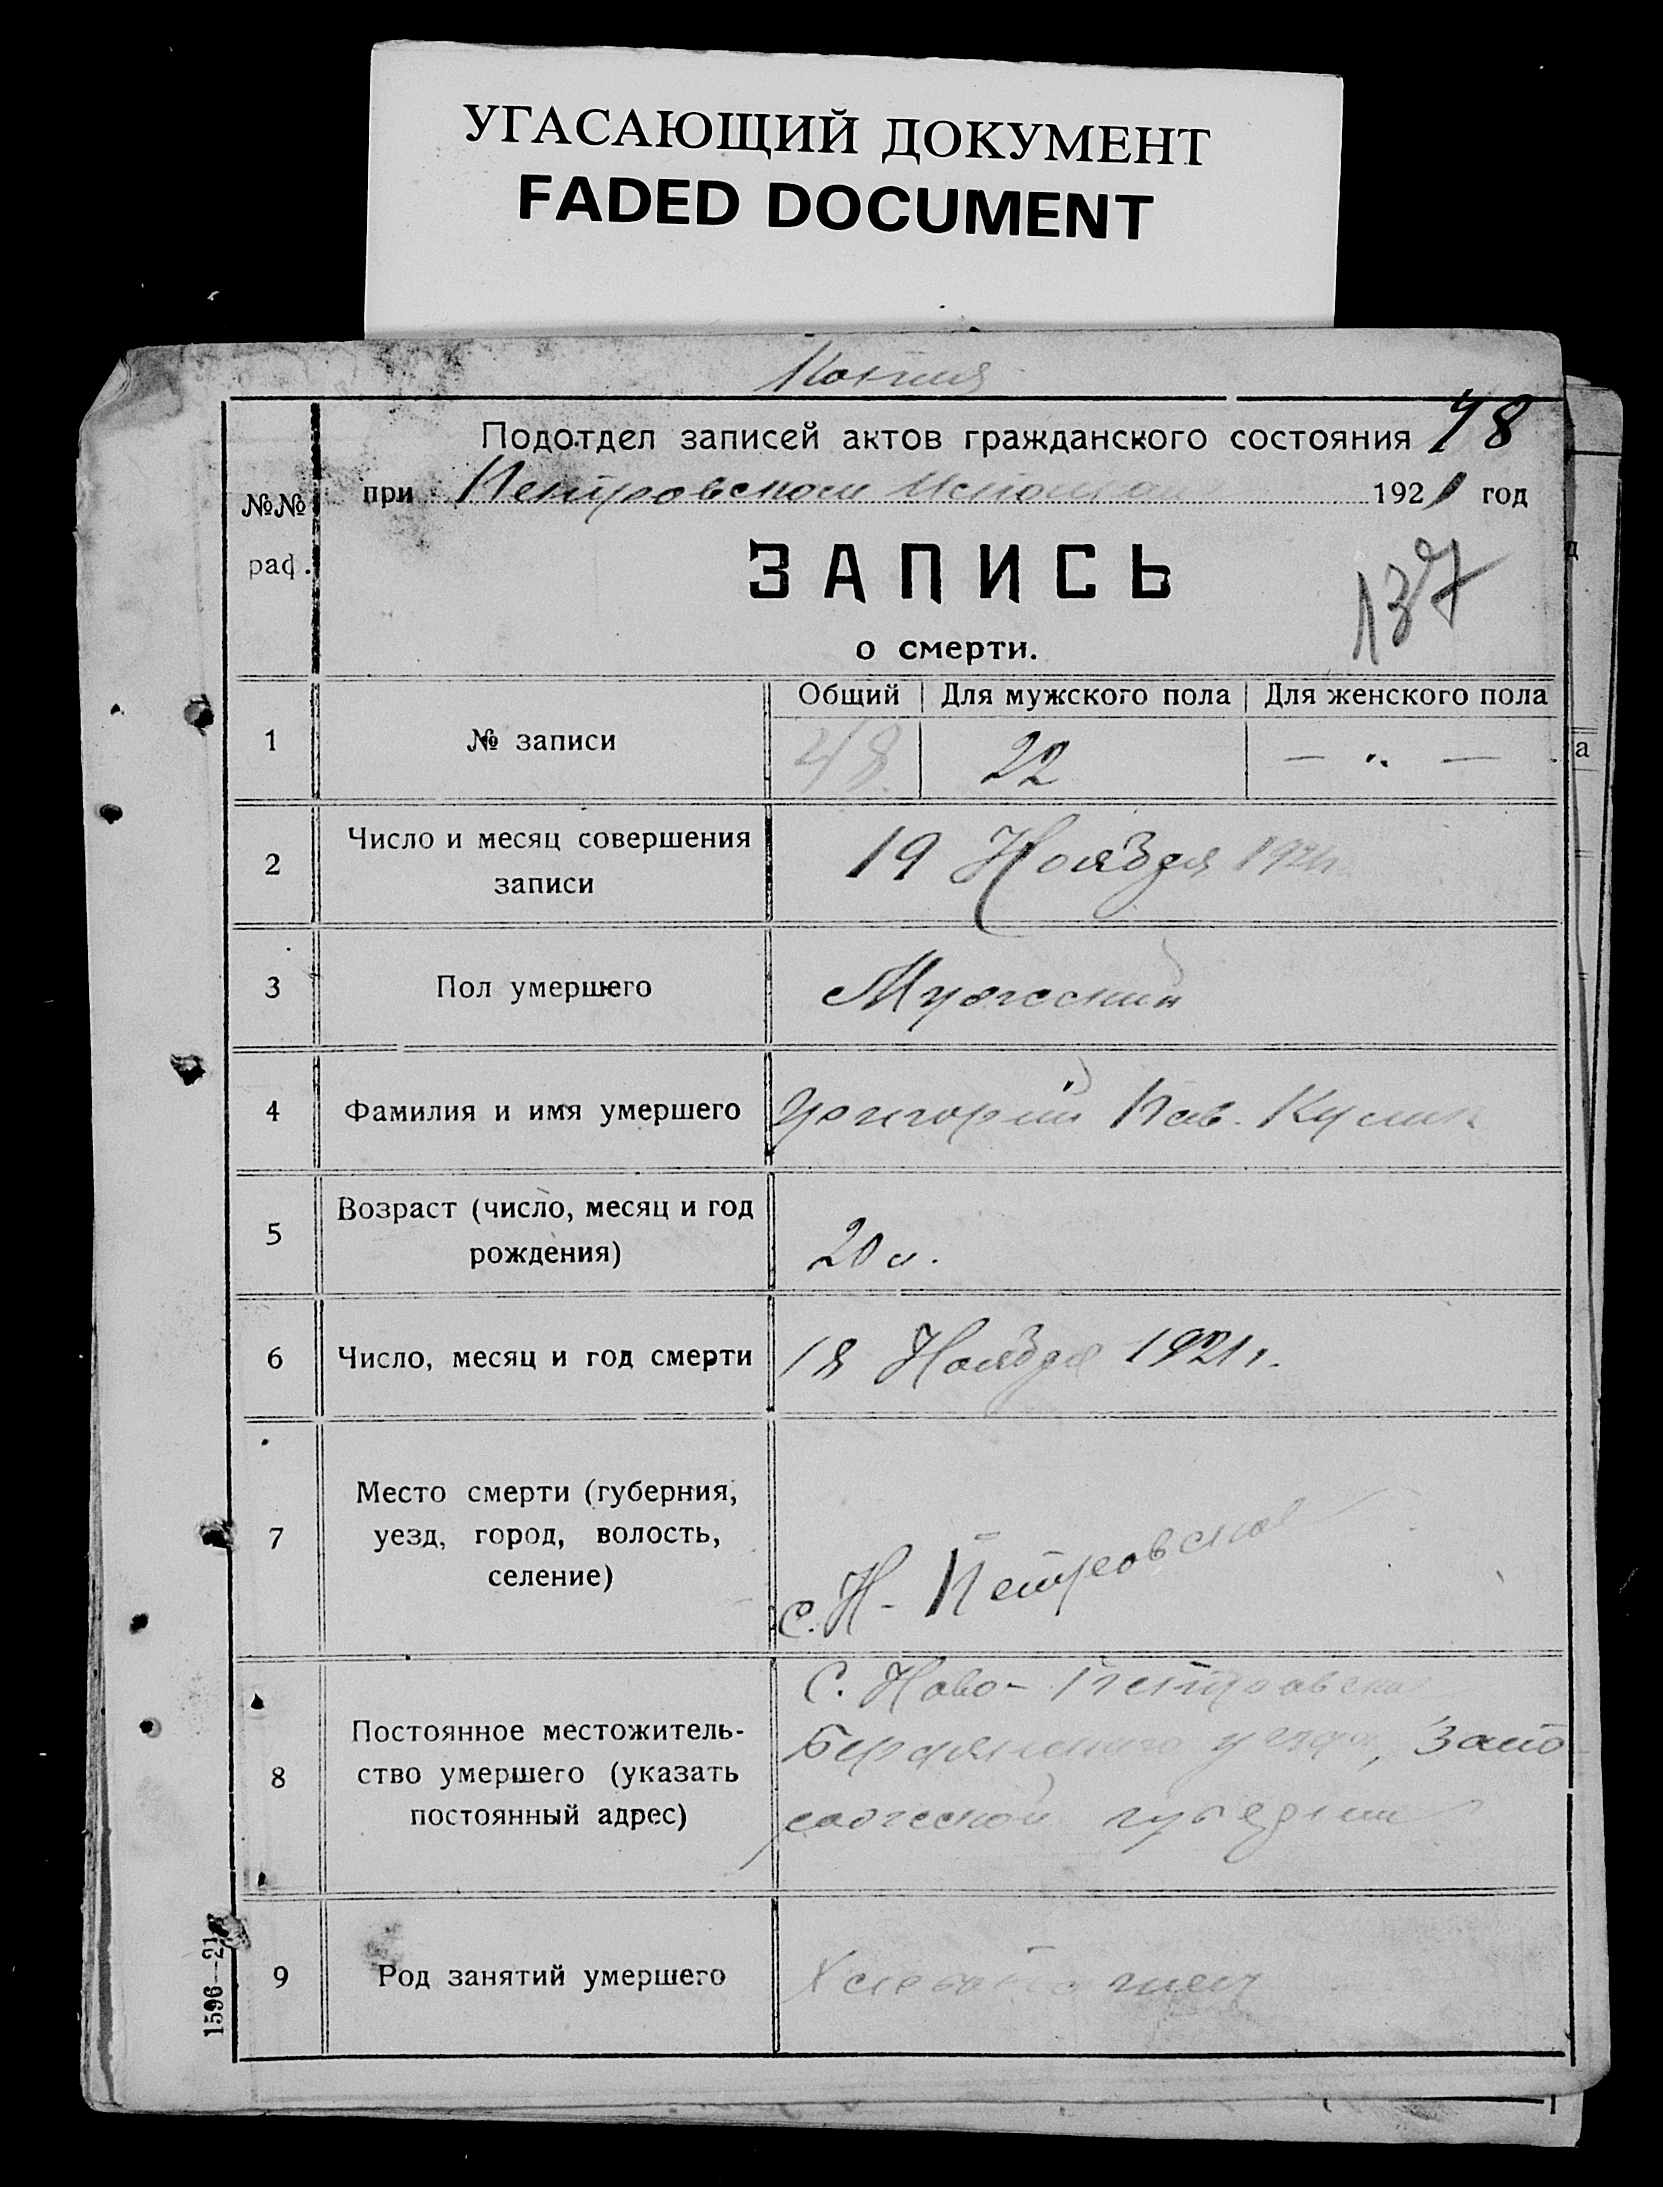 УГАСАЮЩИЙ ДОКУМЕНТ
FADED DOCUMENT
Копия
Подотдел записей актов гражданского состояния 48
при Петровском 1921 год
№№
раф.
ЗАПИСЬ
137
о смерти.
Общий Для мужского пола Для женского пола
1 № записи 48 22 — „ —
2 Число и месяц совершения
записи
19 Ноября 1921
3 Пол умершего Мужеский
4 Фамилия и имя умершего Григорий Пав. Кулик
5 Возраст (число, месяц и год
рождения)
20 л.
6 Число, месяц и год смерти 18 Ноября 1921 г.
7 Место смерти (губерния,
уезд, город, волость,
селение)
с. Н-Петровское
8 Постоянное местожитель-
ство умершего (указать
постоянный адрес)
С. Ново-Петровское
Бердянского уезда, Запо
рожеской губернии
9 Род занятий умершего Хлебопашец
1596—21